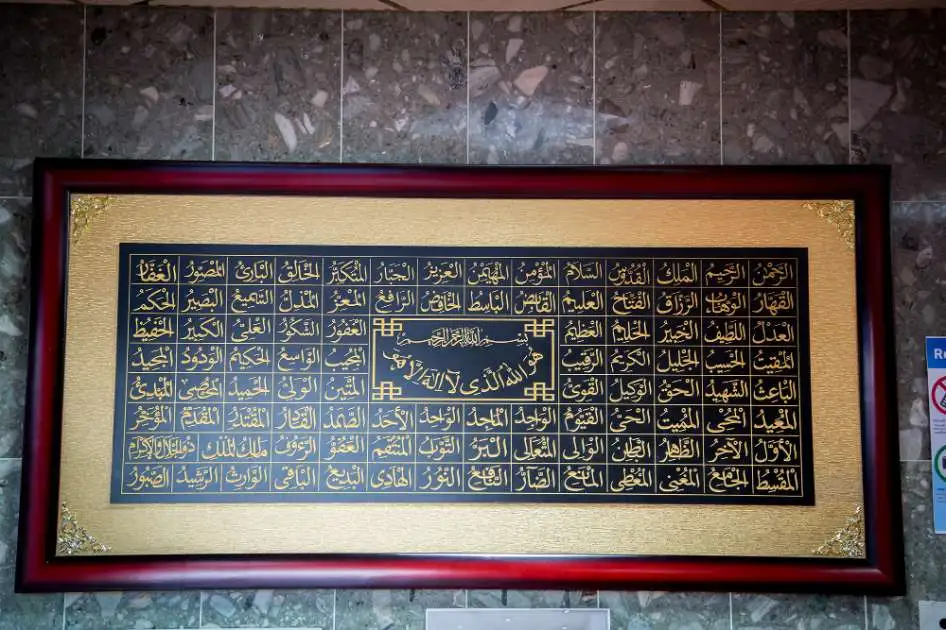 الرَّحْمٰنُ الرَّحِيمُ المَلِكُ القُدُّوسُ السَّلَامُ المُؤْمِنُ المُهَيْمِنُ العَزِيزُ الجَبَّارُ المُتَكَبِّرُ الخَالِقُ البَارِئُ المُصَوِّرُ الغَفَّارُ
القَهَّارُ الوَهَّابُ الرَّزَّاقُ الفَتَّاحُ العَلِيمُ القَابِضُ البَاسِطُ الخَافِضُ الرَّافِعُ المُعِزُّ المُذِلُّ السَّمِيعُ البَصِيرُ الحَكَمُ
العَدْلُ اللَّطِيفُ الخَبِيرُ الحَلِيمُ العَظِيمُ الغَفُورُ الشَّكُورُ العَلِيُّ الكَبِيرُ الحَفِيظُ
المُقِيتُ الحَسِيبُ الجَلِيلُ الكَرِيمُ الرَّقِيبُ المُجِيبُ الوَاسِعُ الحَكِيمُ الوَدُودُ المَجِيدُ
البَاعِثُ الشَّهِيدُ الحَقُّ الوَكِيلُ القَوِيُّ المَتِينُ الوَلِيُّ الحَمِيدُ المُحْصِي المُبْدِئُ
المُعِيدُ المُحْيِي المُمِيتُ الحَيُّ القَيُّومُ الوَاجِدُ المَاجِدُ الوَاحِدُ الأَحَدُ الصَّمَدُ القَادِرُ المُقْتَدِرُ المُقَدِّمُ المُؤَخِّرُ
الأَوَّلُ الآخِرُ الظَّاهِرُ البَاطِنُ الوَالِي المُتَعَالِي البَرُّ التَّوَّابُ المُنْتَقِمُ العَفُوُّ الرَّؤُفُ مَالِكُ المُلْكِ ذُو الجَلَالِ وَالإِكْرَامِ
المُقْسِطُ الجَامِعُ المُغْنِي المُعْطِي المَانِعُ الضَّارُّ النَّافِعُ النُّورُ الهَادِي البَدِيعُ البَاقِي الوَارِثُ الرَّشِيدُ الصَّبُورُ
بِسْمِ اللهِ الرَّحْمٰنِ الرَّحِيمِ
هُوَ اللهُ الَّذِي لَا اِلٰهَ اِلَّا هُوَ